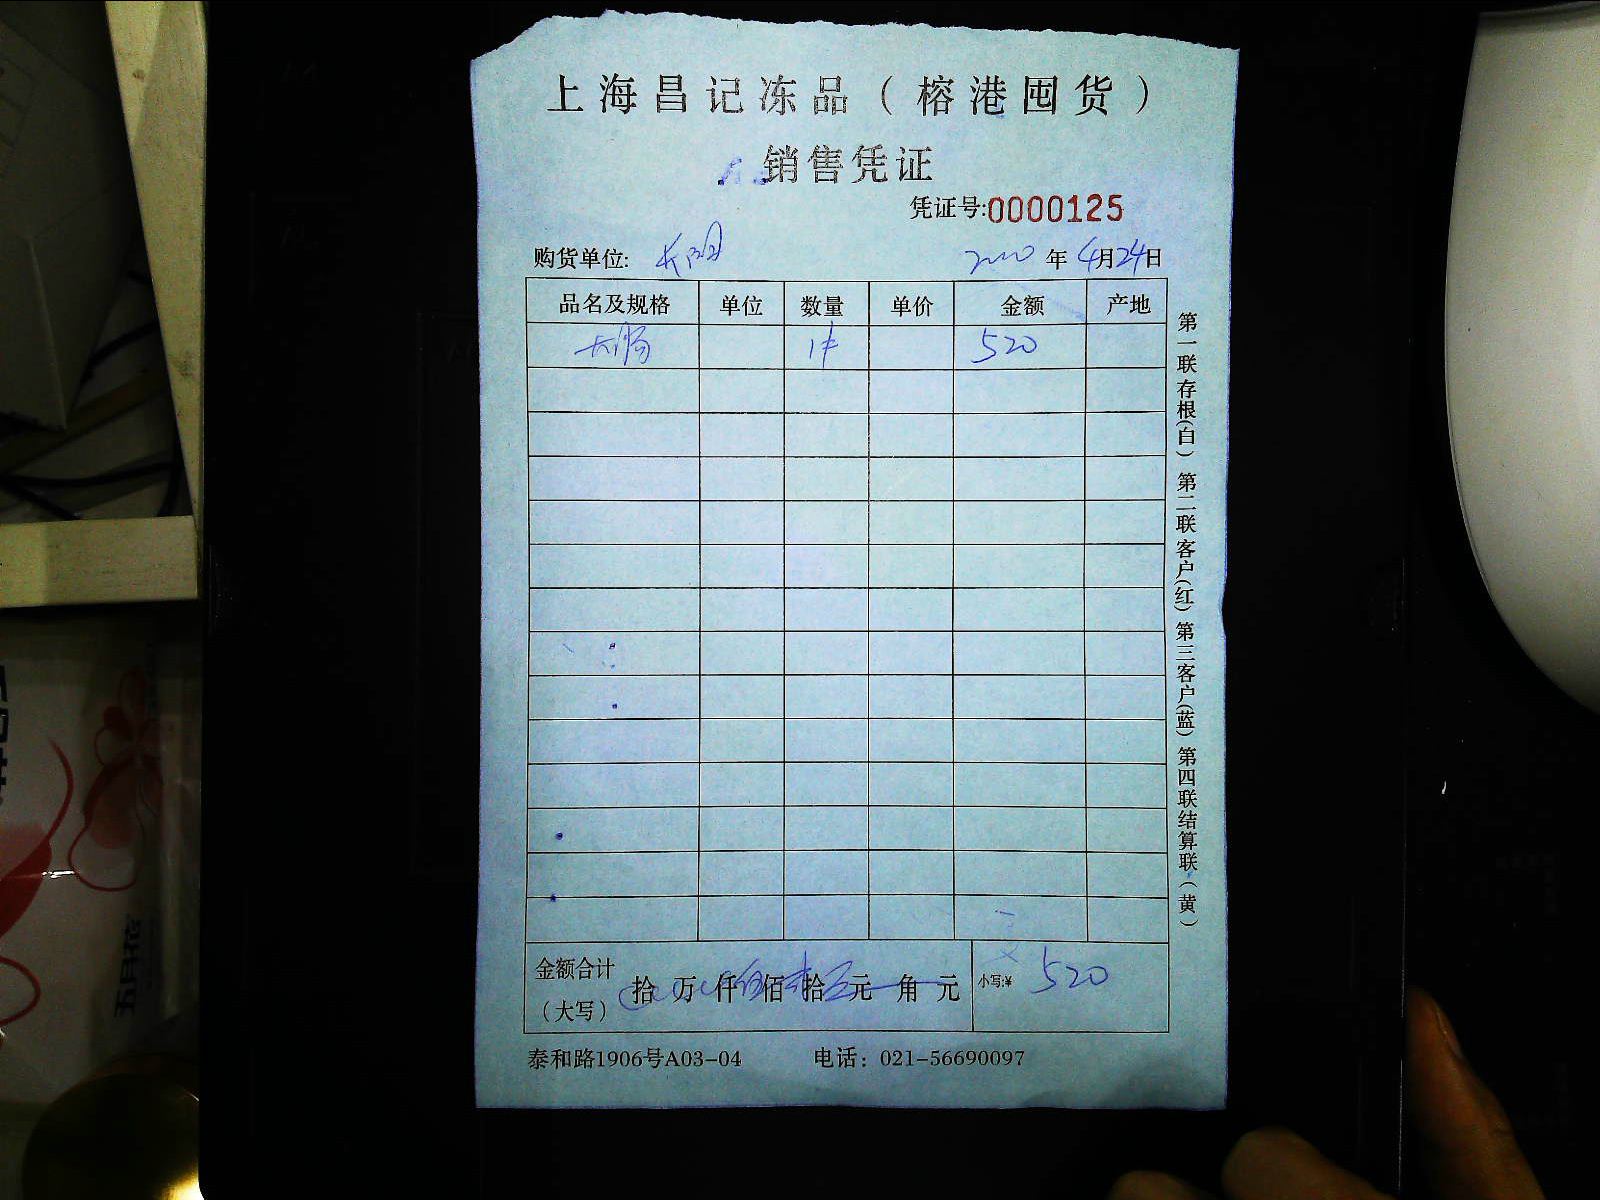 上海昌记冻品（榕港囤货）
销售凭证
凭证号:0000125
购货单位: 长阳 2020 年 4月24日
品名及规格 单位 数量 单价 金额 产地
大肠 1件 520
金额合计（大写） 拾 万 仟 佰 拾 元 角 元 小写:¥ 520
泰和路1906号A03-04 电话：021-56690097
第一联存根(白) 第二联客户(红) 第三客户(蓝) 第四联结算联(黄)
五月花